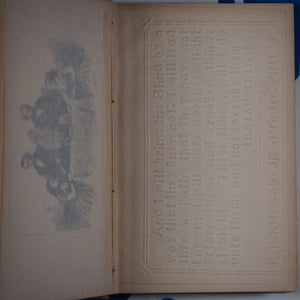 And I will bring the Blind by a
way that they knew not; I will lead
them in Paths that they have not
known: I will make darkness light
before them, and crooked things
straight. These things will I do
unto them, and not forsake them.
ISAIAH, XLII, 16.
N. B. KNEASS, JR. Printer, PHILA.